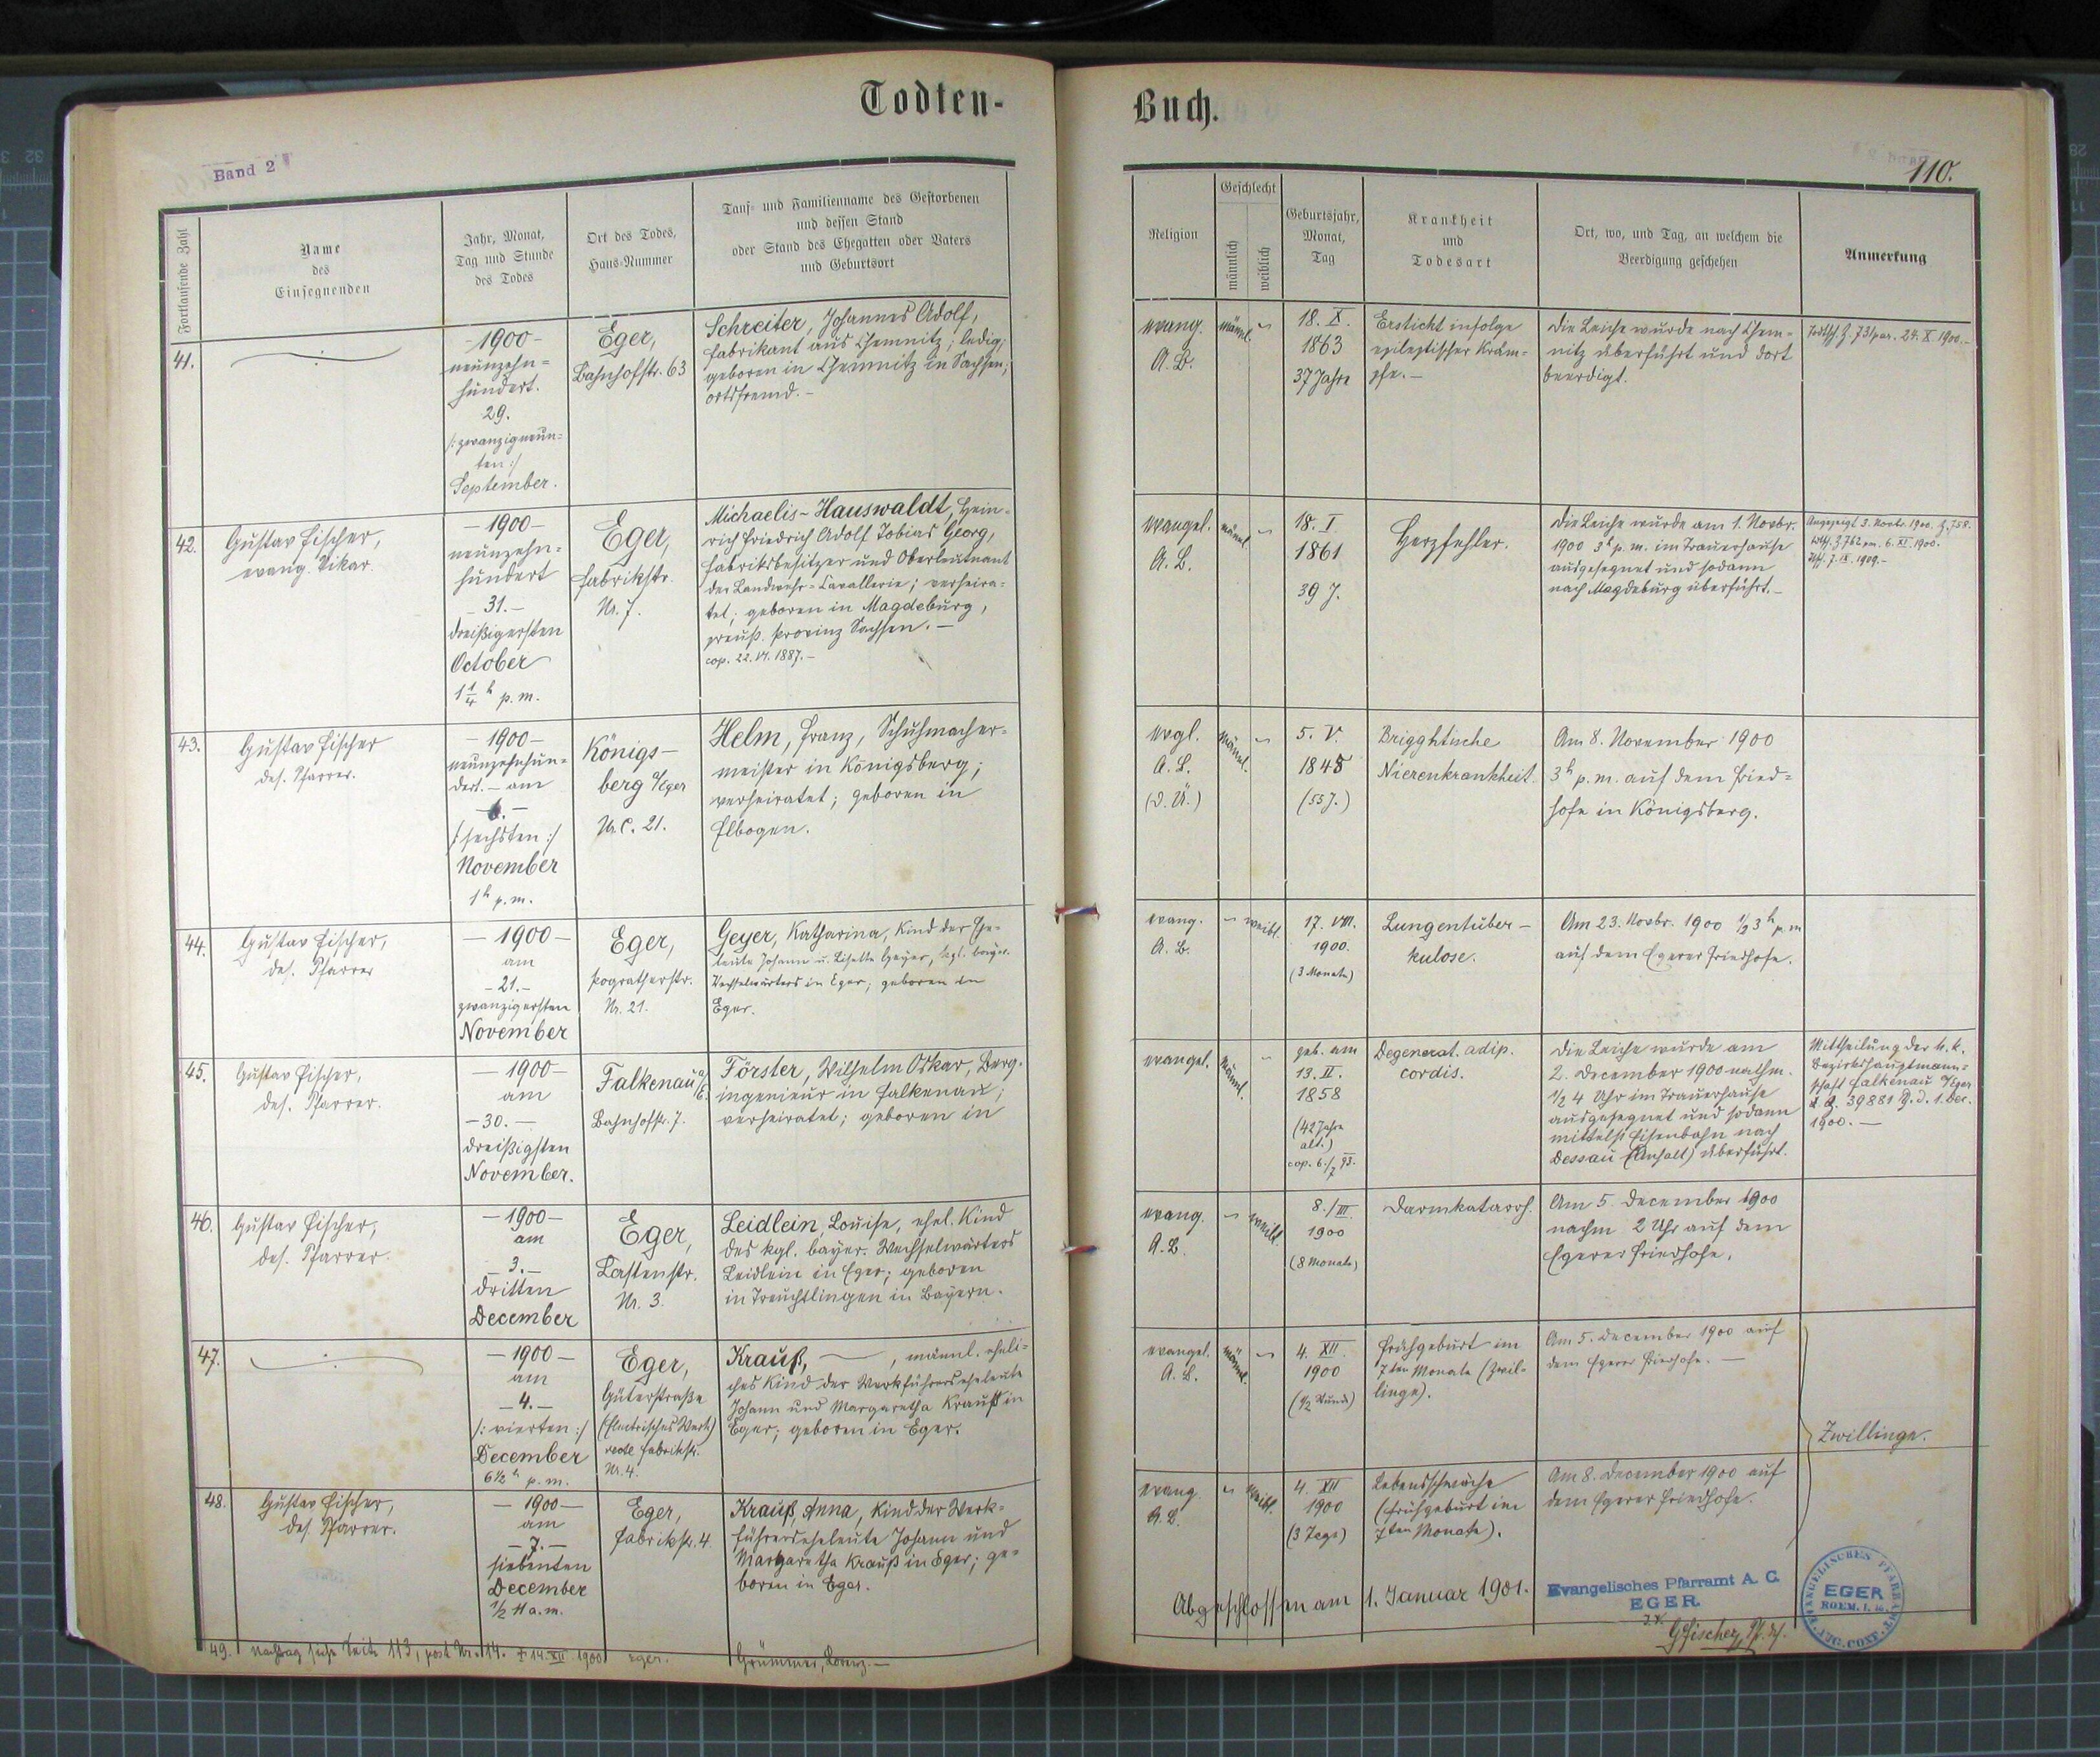 Todten-
Band 2
Fortlaufende Zahl
Name
des
Einsegnenden
Jahr, Monat,
Tag und Stunde
des Todes
Ort des Todes,
Haus-Nummer
Tauf- und Familienname des Gestorbenen
und dessen Stand
oder Stand des Ehegatten oder Vaters
und Geburtsort
41.
-1900-
neunzehn=
hundert.
29.
/:zwanzigneun=
ten:/
September.
Eger,
Bahnhofstr. 63
Schreiter, Johannes Adolf,
Fabrikant aus Chemnitz; ledig;
geboren in Chemnitz in Sachsen;
ortsfremd.-
42.
Gustav Fischer,
evang. Vikar
-1900-
neunzehn=
hundert
-31.-
dreißigersten
October
1 1/4 h p.m.
Eger,
Fabrikstr.
Nr. 7.
Michaelis-Hauswaldt, Hein=
rich Friedrich Adolf Tobias Georg,
Fabriksbesitzer und Oberleutnant
der Landwehr-Cavallerie; verheira=
tet; geboren in Magdeburg,
preuß. Provinz Sachsen.-
cop. 22.VI.1887.-
43.
Gustav Fischer
des. Pfarrer.
-1900-
neunzehnhun=
dert.- am
-6.-
/:sechsten:/
November
1h p.m.
Königs-
berg a/Eger
Nr. C. 21.
Helm, Franz, Schuhmacher-
meister in Königsberg;
verheiratet; geboren in
Elbogen.
44.
Gustav Fischer,
des. Pfarrer
-1900-
am
-21.-
zwanzigersten
November
Eger,
Pogratherstr.
Nr. 21.
Geyer, Katharina, Kind der Ehe=
leute Johann u. Lisette Geyer, kgl. bayer.
Wechselwärters in Eger; geboren in
Eger.
45.
Gustav Fischer,
des. Pfarrer.
-1900-
am
-30.-
dreißigsten
November.
Falkenau a/E.
Bahnhofstr. 7.
Förster, Wilhelm Oskar, Berg-
ingenieur in Falkenau;
verheiratet; geboren in
46.
Gustav Fischer,
des. Pfarrer.
-1900-
am
-3.-
dritten
December
Eger,
Lastenstr.
Nr. 3.
Leidlein, Louise, ehel. Kind
des kgl. bayer. Wechselwärters
Leidlein in Eger; geboren
in Treuchtlingen in Bayern.
47.
-1900-
am
-4.-
/:vierten:/
December
6 1/2 h p.m.
Eger,
Güterstraße
(Elektrisches Werk)
recte Fabrikstr.
Nr. 4.
Krauß, —, männl. eheli=
ches Kind der Werkführerseheleute
Johann und Margaretha Krauß in
Eger; geboren in Eger.
48.
Gustav Fischer,
des. Pfarrer.
-1900-
am
-7.-
siebenten
December
1/2 11 a.m.
Eger,
Fabrikstr. 4.
Krauß, Anna, Kind der Werk=
führerseheleute Johann und
Margaretha Krauß in Eger; ge=
boren in Eger.
49. Nachtrag siehe Seite 113, post Nr. 14. † 14.XII 1900 Eger. Grümmer, Lorenz.-
Buch.
110.
Religion
Geschlecht
männlich
weiblich
Geburtsjahr,
Monat,
Tag
Krankheit
und
Todesart
Ort, wo, und Tag, an welchem die
Beerdigung geschehen
Anmerkung
evang.
A.B.
männl.
18. X.
1863
37 Jahre
Erstickt infolge
epileptischer Kräm=
pfe.-
Die Leiche wurde nach Chem=
nitz überführt und dort
beerdigt.
24. X. 1900.-
evangel.
A.B.
männl.
18. I
1861
39 J.
Herzfehler.
Die Leiche wurde am 1. Novbr.
1900 3h p.m. im Trauerhause
ausgesegnet und sodann
nach Magdeburg überführt.-
Angezeigt 3. Novbr. 1900. Z. 758.
Z. 762 6. XI. 1900.
7. IX. 1909.-
evgl.
A.B.
(D.Ü.)
männl.
5. V.
1845
(55 J.)
Brigghtische
Nierenkrankheit.
Am 8. November 1900
3h p.m. auf dem Fried=
hofe in Königsberg.
evang.
A.B.
weibl.
17. VIII.
1900.
(3 Monate)
Lungentuber-
kulose.
Am 23. Novbr. 1900 1/2 3h p.m
auf dem Egerer Friedhofe.
evangel.
männl.
geb. am
13. II.
1858
(42 Jahre
alt.)
cop. 6./7 93.
Degenerat. adip.
cordis.
Die Leiche wurde am
2. December 1900 nachm.
1/2 4 Uhr im Trauerhause
ausgesegnet und sodann
mittelst Eisenbahn nach
Dessau (Anhalt) überführt.
Mittheilung der k. k.
Bezirkshauptmann=
schaft Falkenau a/Eger
Z. 39881 d. 1. Dec.
1900.-
evang.
A.B.
weibl.
8./III.
1900
(8 Monate)
Darmkatarrh.
Am 5. December 1900
nachm 2 Uhr auf dem
Egerer Friedhofe.
evangel.
A.B.
männl.
4. XII.
1900
(1/2 Stunde)
Frühgeburt im
7ten Monate (Zwil-
linge).
Am 5. December 1900 auf
dem Egerer Friedhofe.-
Zwillinge.
evang.
A.B.
weibl.
4. XII
1900
(3 Tage)
Lebensschwäche
(Frühgeburt im
7ten Monate).
Am 8. December 1900 auf
dem Egerer Friedhofe.
Abgeschlossen am 1. Januar 1901.
Evangelisches Pfarramt A. C.
EGER
GFischer, Pf. des.
EVANGELISCHES PFARRAMT
EGER
BOEM. i.
AUG. CONF.